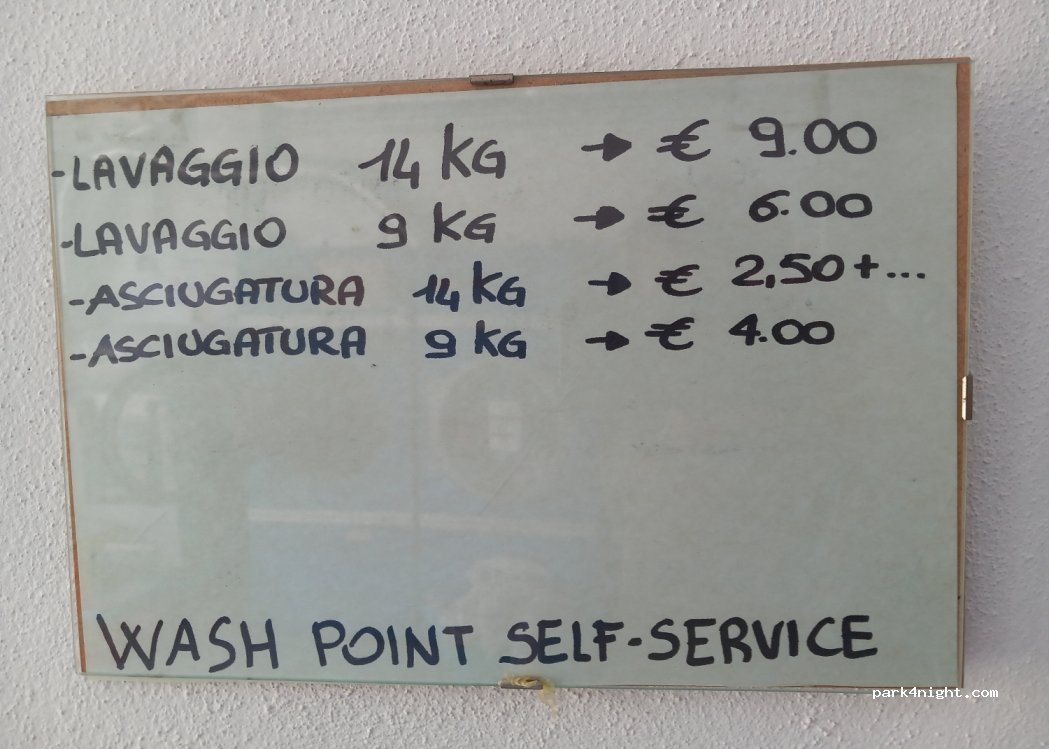 -LAVAGGIO 14 KG → € 9.00
-LAVAGGIO 9 KG → € 6.00
-ASCIUGATURA 14 KG → € 2,50+...
-ASCIUGATURA 9 KG → € 4.00
WASH POINT SELF-SERVICE
park4night.com